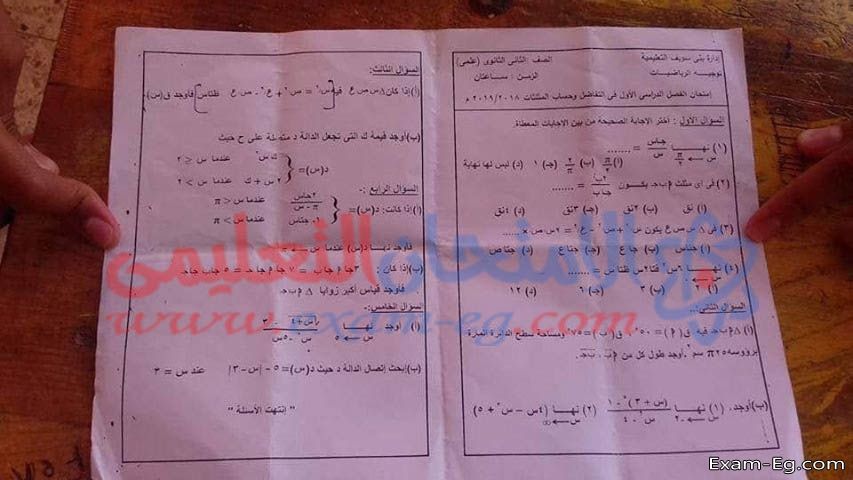 إدارة بنى سويف التعليمية
توجيه الرياضيات
الصف : الثانى الثانوى (علمى)
الزمن : ساعتان
إمتحان الفصل الدراسي الأول فى التفاضل وحساب المثلثات ٢٠١٩/٢٠١٨ م
السؤال الأول : اختر الاجابة الصحيحة من بين الاجابات المعطاة.
(١) نهـــا س ← π/٢ جاس/س = .......
(أ) π/٢ (ب) ٢/π (جـ) ١ (د) ليس لها نهاية
(٢) فى اى مثلث أ ب جـ يكون ٢ب/جا ب = .......
(أ) نق (ب) ٢نق (جـ) ٣نق (د) ٤نق
(٣) فى Δ س ص ع يكون س٢ + ص٢ - ع٢ = ٢ س ص × .....
(أ) جتاس (ب) جاع (جـ) جتاع (د) جتا ص
(٤) نهـــا س ← ٠ ٦س٢ قتا٢س ظتاس = .......
(ب) ٣ (جـ) ٦ (د) ١٢
السؤال الثانى:.
(أ) Δ أ ب جـ فيه ق(أ) = ٥٠° ، ق(ب) = ٧٥° ومساحة سطح الدائرة المارة
برؤوسه ٢٥π سم٢ . أوجد طول كل من أ ب ، ب جـ
(ب) أوجد. (١) نهـــا س ← -٢ (س + ٣)٥ - ١ / س٢ - ٤ (٢) نهـــا س ← ∞ (٤س - س٢ + ٥)
السؤال الثالث:.
(أ) إذا كان Δ س ص ع فيه س٢ = ص٢ + ع٢ - ص ع ظتاس فأوجد ق(س).
(ب) أوجد قيمة ك التى تجعل الدالة د متصلة على ح حيث
د(س) = ك س٢ عندما س ≤ ٢
٢ س + ك عندما س > ٢
السؤال الرابع :.
(أ) إذا كانت: د(س) = ٢جاس / π - س عندما س < π
١ - جتاس عندما س > π
فأوجد نهـا د(س) عندما س
(ب) إذا كان : ٣جا أ جاب = ٧ جا أ جاجـ = ٥ جاب جاجـ
فأوجد قياس أكبر زوايا Δ أ ب جـ
السؤال الخامس:.
(أ) أوجد نهـــا س ← ٥ √س+٤ - ٣ / س٢ - ٥س
(ب) إبحث إتصال الدالة د حيث د(س) = ٥ - |س - ٣| عند س = ٣
" إنتهت الأسئلة "
الامتحان التعليمى
www.exam-eg.com
Exam-Eg.com